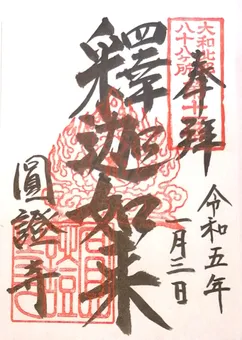 奉拝
大和北部
八十八ヶ所
釋迦如来
令和五年
一月三日
圓證寺